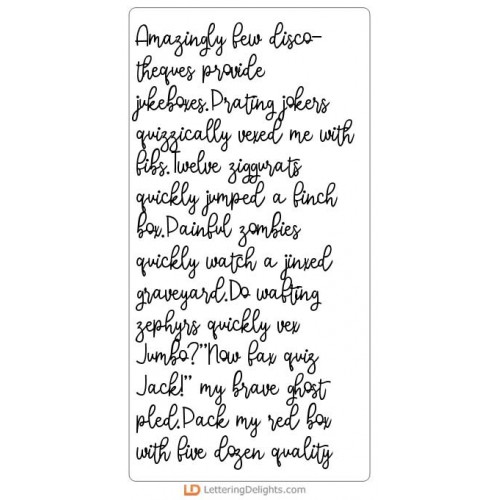 Amazingly few disco-
theques provide
jukeboxes.Prating jokers
quizzically vexed me with
fibs.Twelve ziggurats
quickly jumped a finch
box.Painful zombies
quickly watch a jinxed
graveyard.Do wafting
zephyrs quickly vex
Jumbo?"Now fax quiz
Jack!" my brave ghost
pled.Pack my red box
with five dozen quality
LD LetteringDelights.com